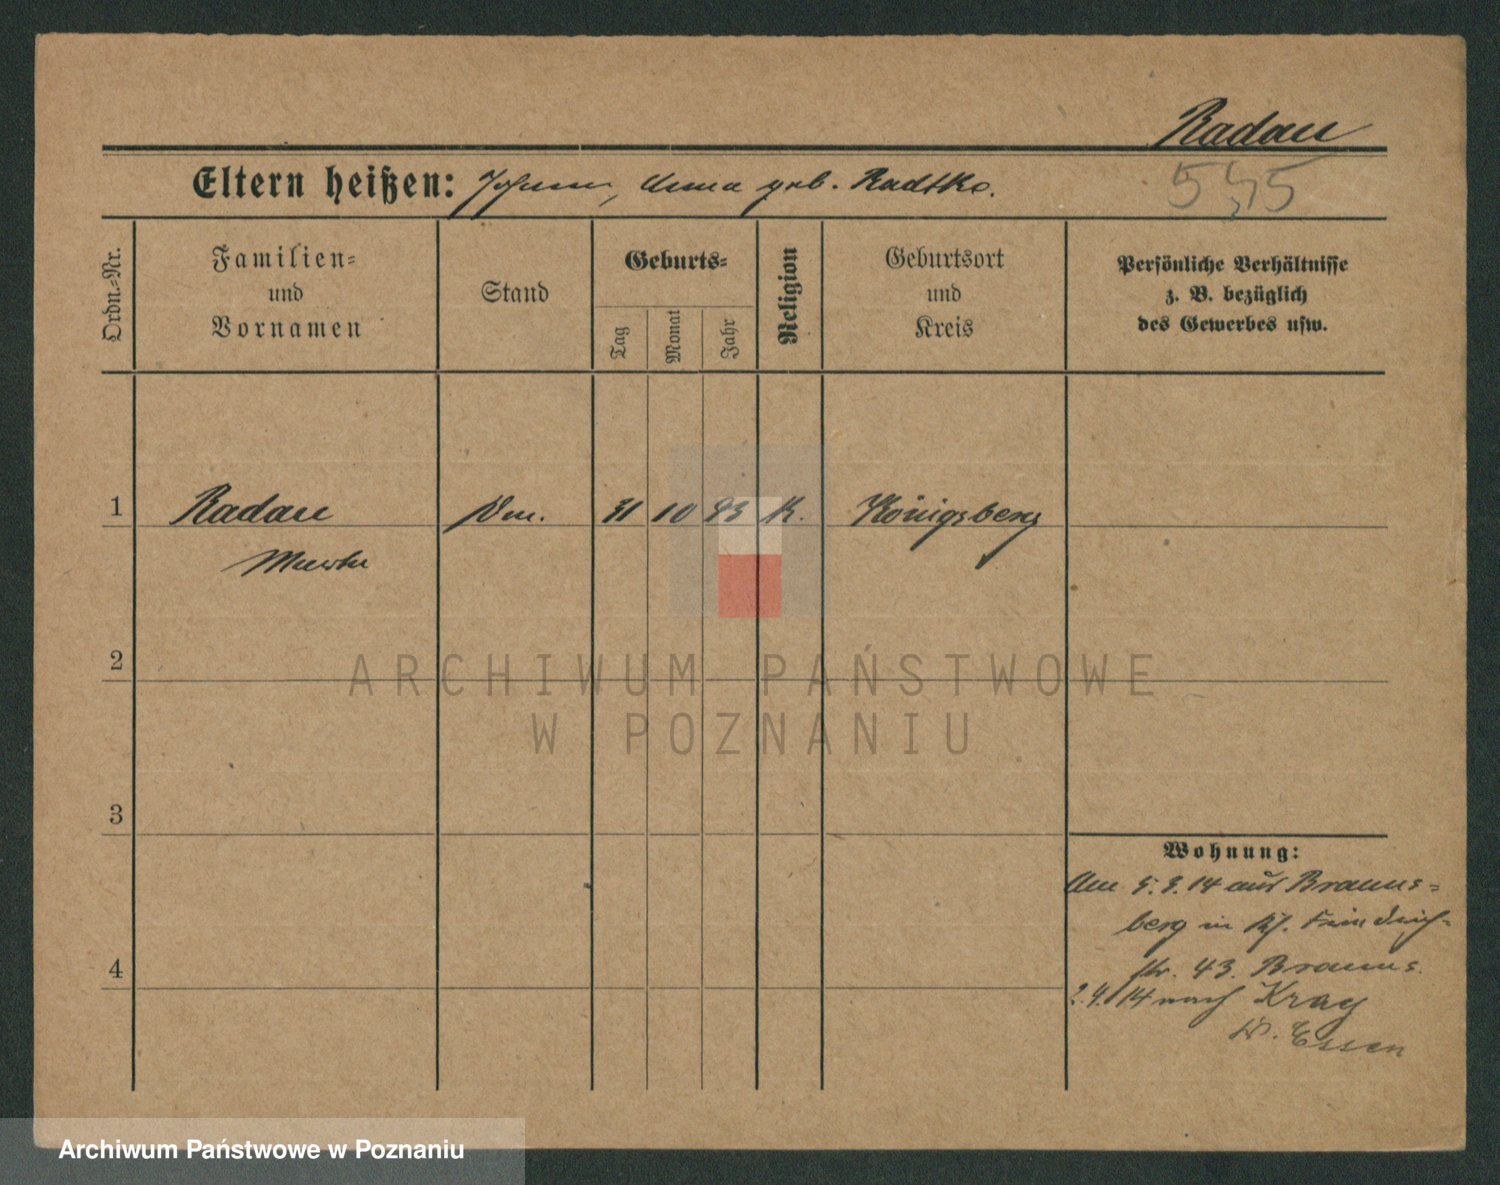 Radau
545
Eltern heißen: Johann, Anna geb. Radtke.
Ordn.-Nr.
Familien-
und
Vornamen
Stand
Geburts-
Tag
Monat
Jahr
Religion
Geburtsort
und
Kreis
Persönliche Verhältnisse
z. B. bezüglich
des Gewerbes usw.
1 Radau 31 10 93 K. Königsberg
2
ARCHIWUM PAŃSTWOWE
W POZNANIU
3
Wohnung:
Am 5.3.14 aus Brauns-
berg in Friedrich-
str. 43. Brauns.
4
2.4.14 nach Kray
Essen
Archiwum Państwowe w Poznaniu